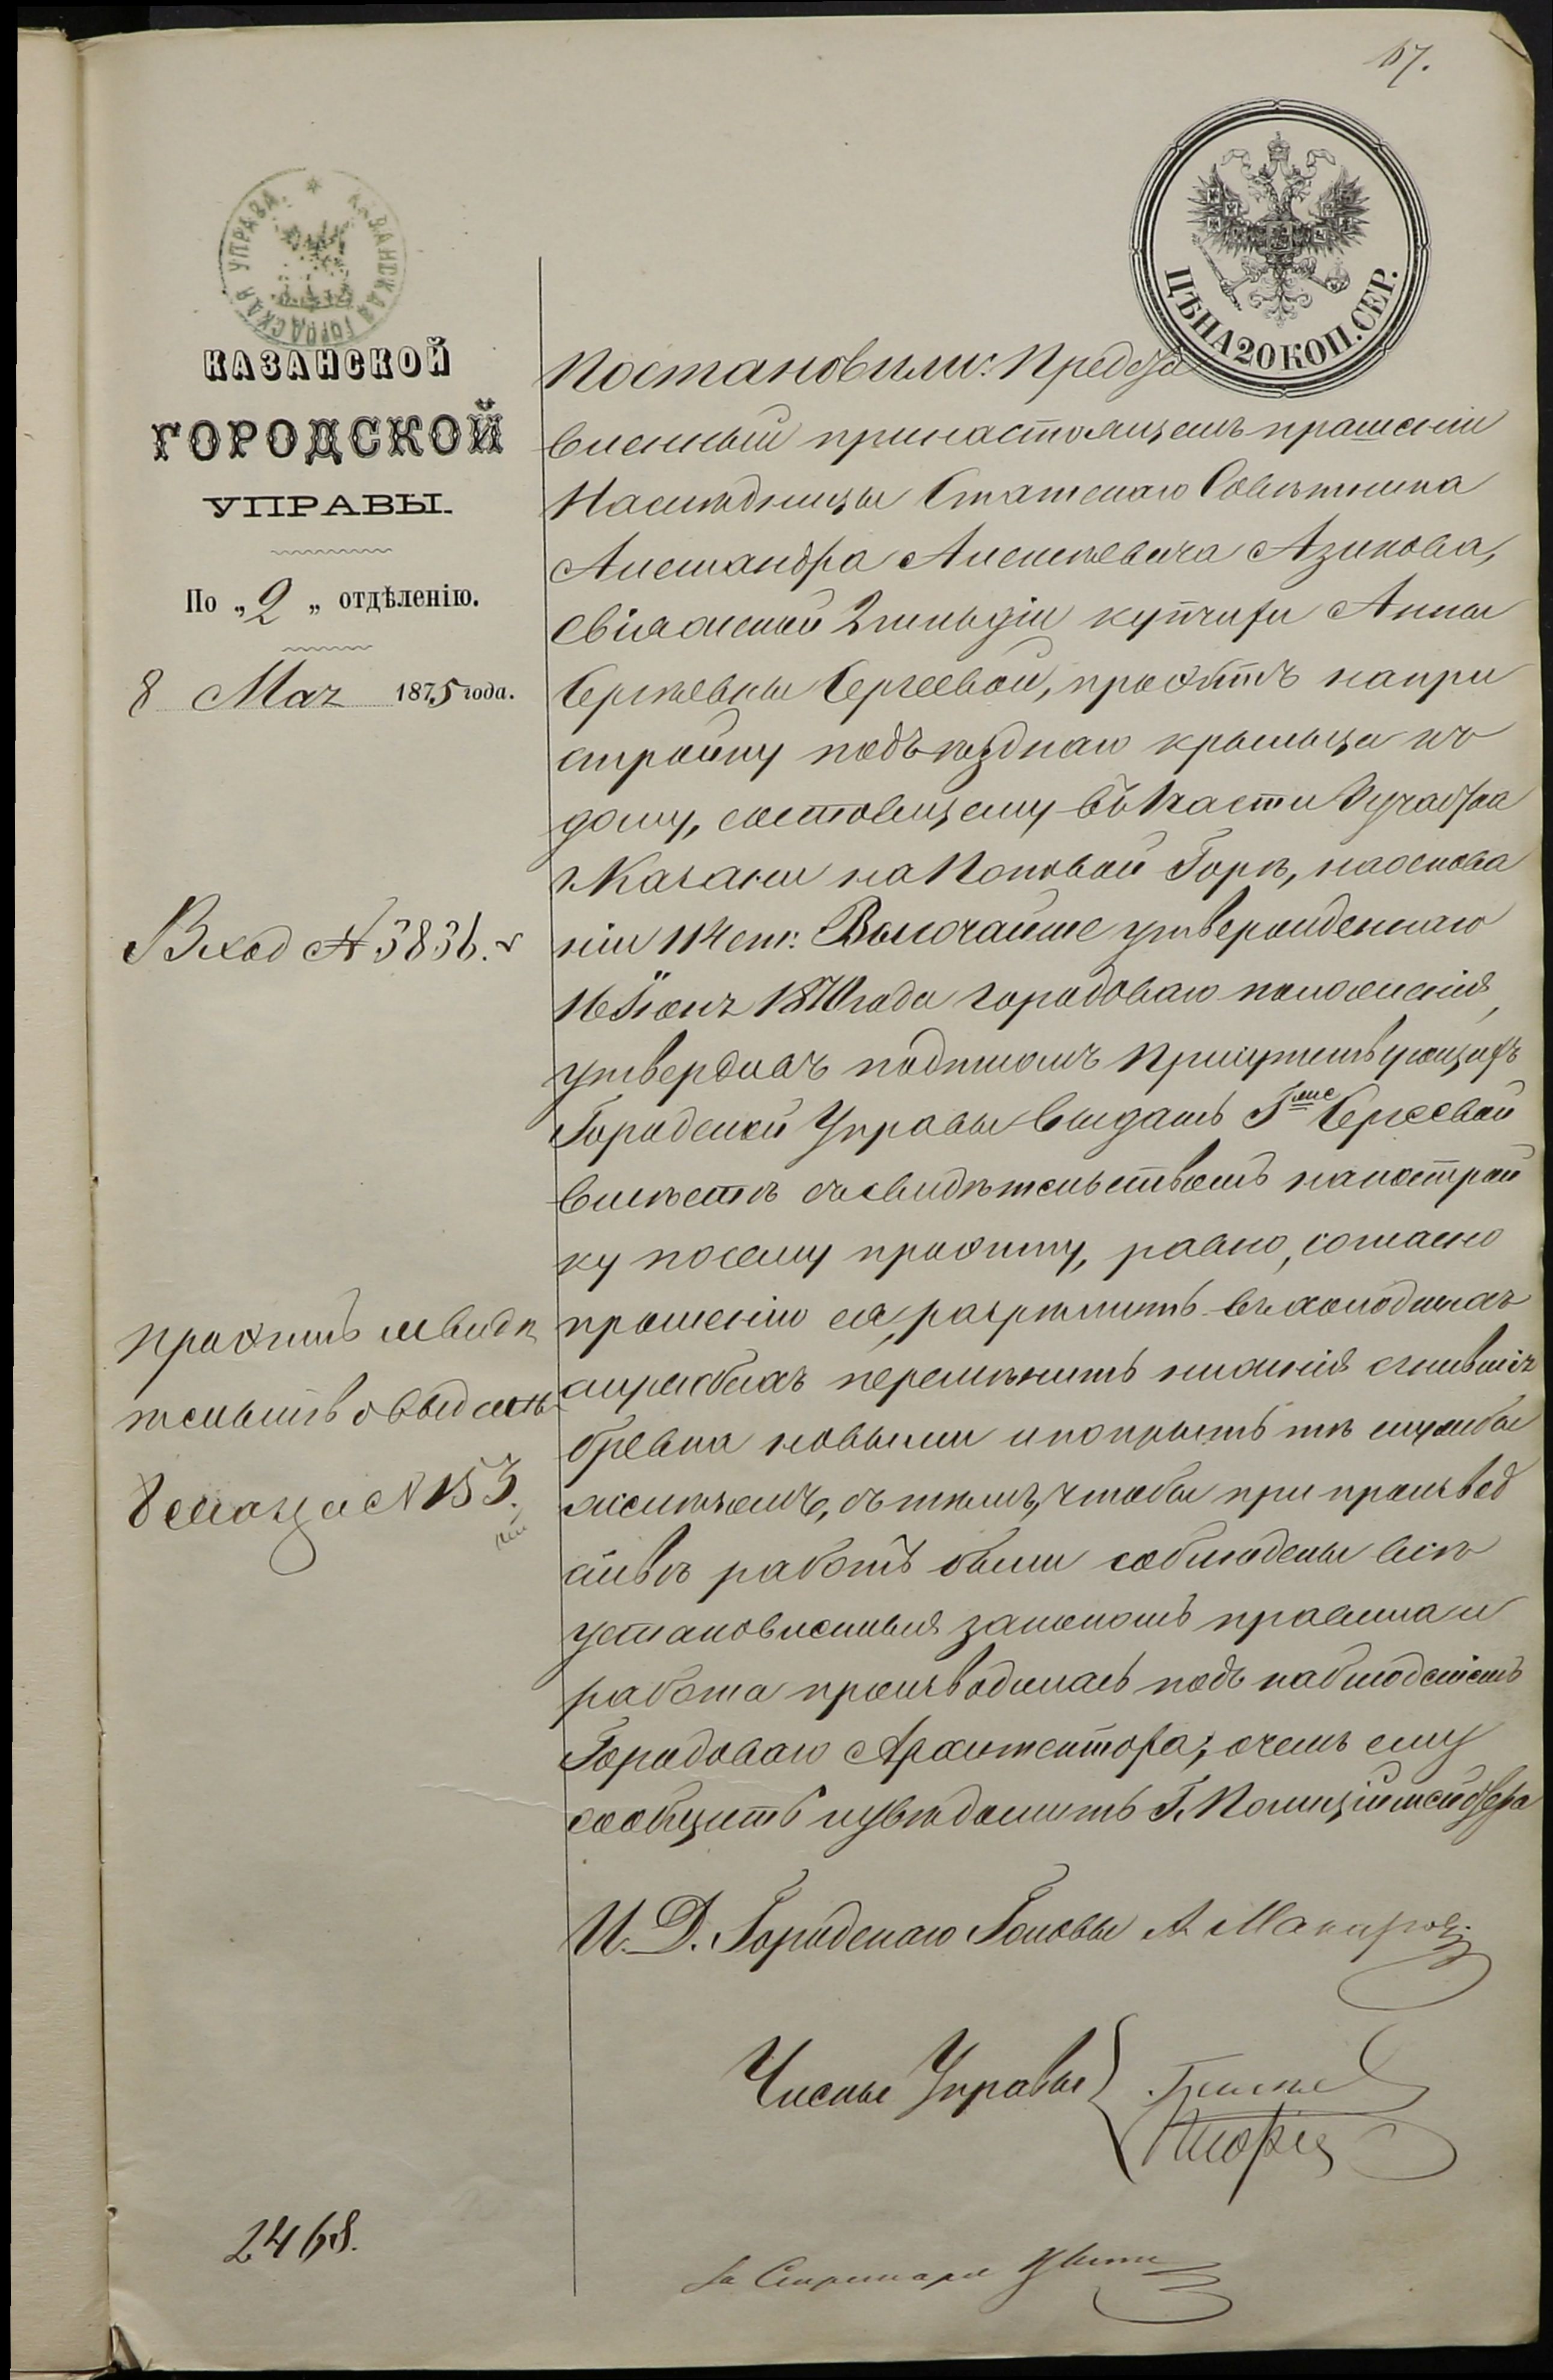 17.
КАЗАНСКАЯ ГОРОДСКАЯ УПРАВА
ЦѢНА 20 КОП. СЕР.
КАЗАНСКОЙ
ГОРОДСКОЙ
УПРАВЫ.
По „2„ отдѣленію.
8 Мая 1875 года.
Вход № 3836.
Проэктъ и свидѣ
тельство выданъ
8 мая за № 153.
2468.
Постановили: Предста
вленный при настоящемъ прошеніи
Наслѣдницы Статскаго Совѣтника
Александра Алексѣевича Азикова,
Свіяжской 2 гильдіи купчихи Анны
Сергѣевны Сергеевой, проэктъ на при
стройку подъѣзднаго крыльца къ
дому, состоящему въ 1 части 1 участка
г. Казани на Поповой Горѣ, на основа
ніи 114 ст: Высочайше утвержденнаго
16 Іюня 1870 года городоваго положенія,
утвердивъ подписомъ Присутствующихъ
Городской Управы выдать Г-жѣ Сергеевой
вмѣстѣ съ свидѣтельствомъ на построй
ку по сему проэкту, равно, согласно
прошенію ея, разрѣшить въ холодныхъ
службахъ перемѣнить нижнія сгнившія
бревна новыми и покрыть тѣ службы
желѣзомъ, съ тѣмъ, чтобы при производ
ствѣ работъ были соблюдены всѣ
установленныя закономъ правила и
работа производилась подъ наблюденіемъ
Городоваго Архитектора, о чемъ ему
сообщить и увѣдомить Г. Полиціймейстера
И. Д. Городскаго Головы А. Макаров
Члены Управы
За Секретаря